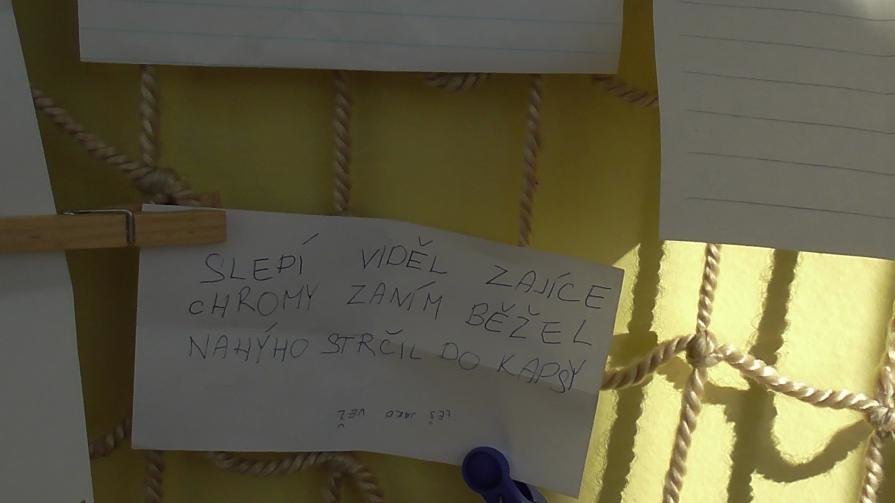 SLEPÍ VIDĚL ZAJÍCE
CHROMY ZANÍM BĚŽEL
NAHÝHO STRČIL DO KAPSY
LEŽ JAKO VĚŽ